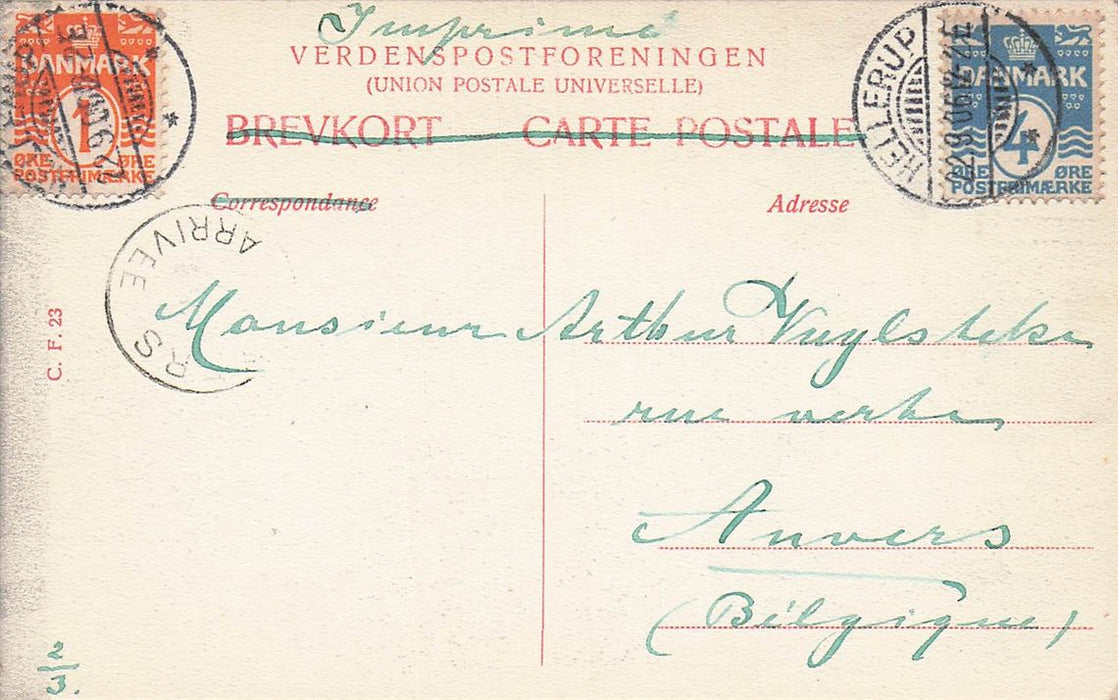 Imprimé
VERDENSPOSTFORENINGEN
(UNION POSTALE UNIVERSELLE)
BREVKORT CARTE POSTALE
DANMARK
1
ØRE ØRE
POSTFRIMÆRKE
HELLERUP
DANMARK
4
ØRE ØRE
POSTFRIMÆRKE
Correspondance
Adresse
ARRIVEE
RS
C. F. 23
Monsieur Arthur Vuylsteke
rue verte
Anvers
(Bélgique)
2/3.